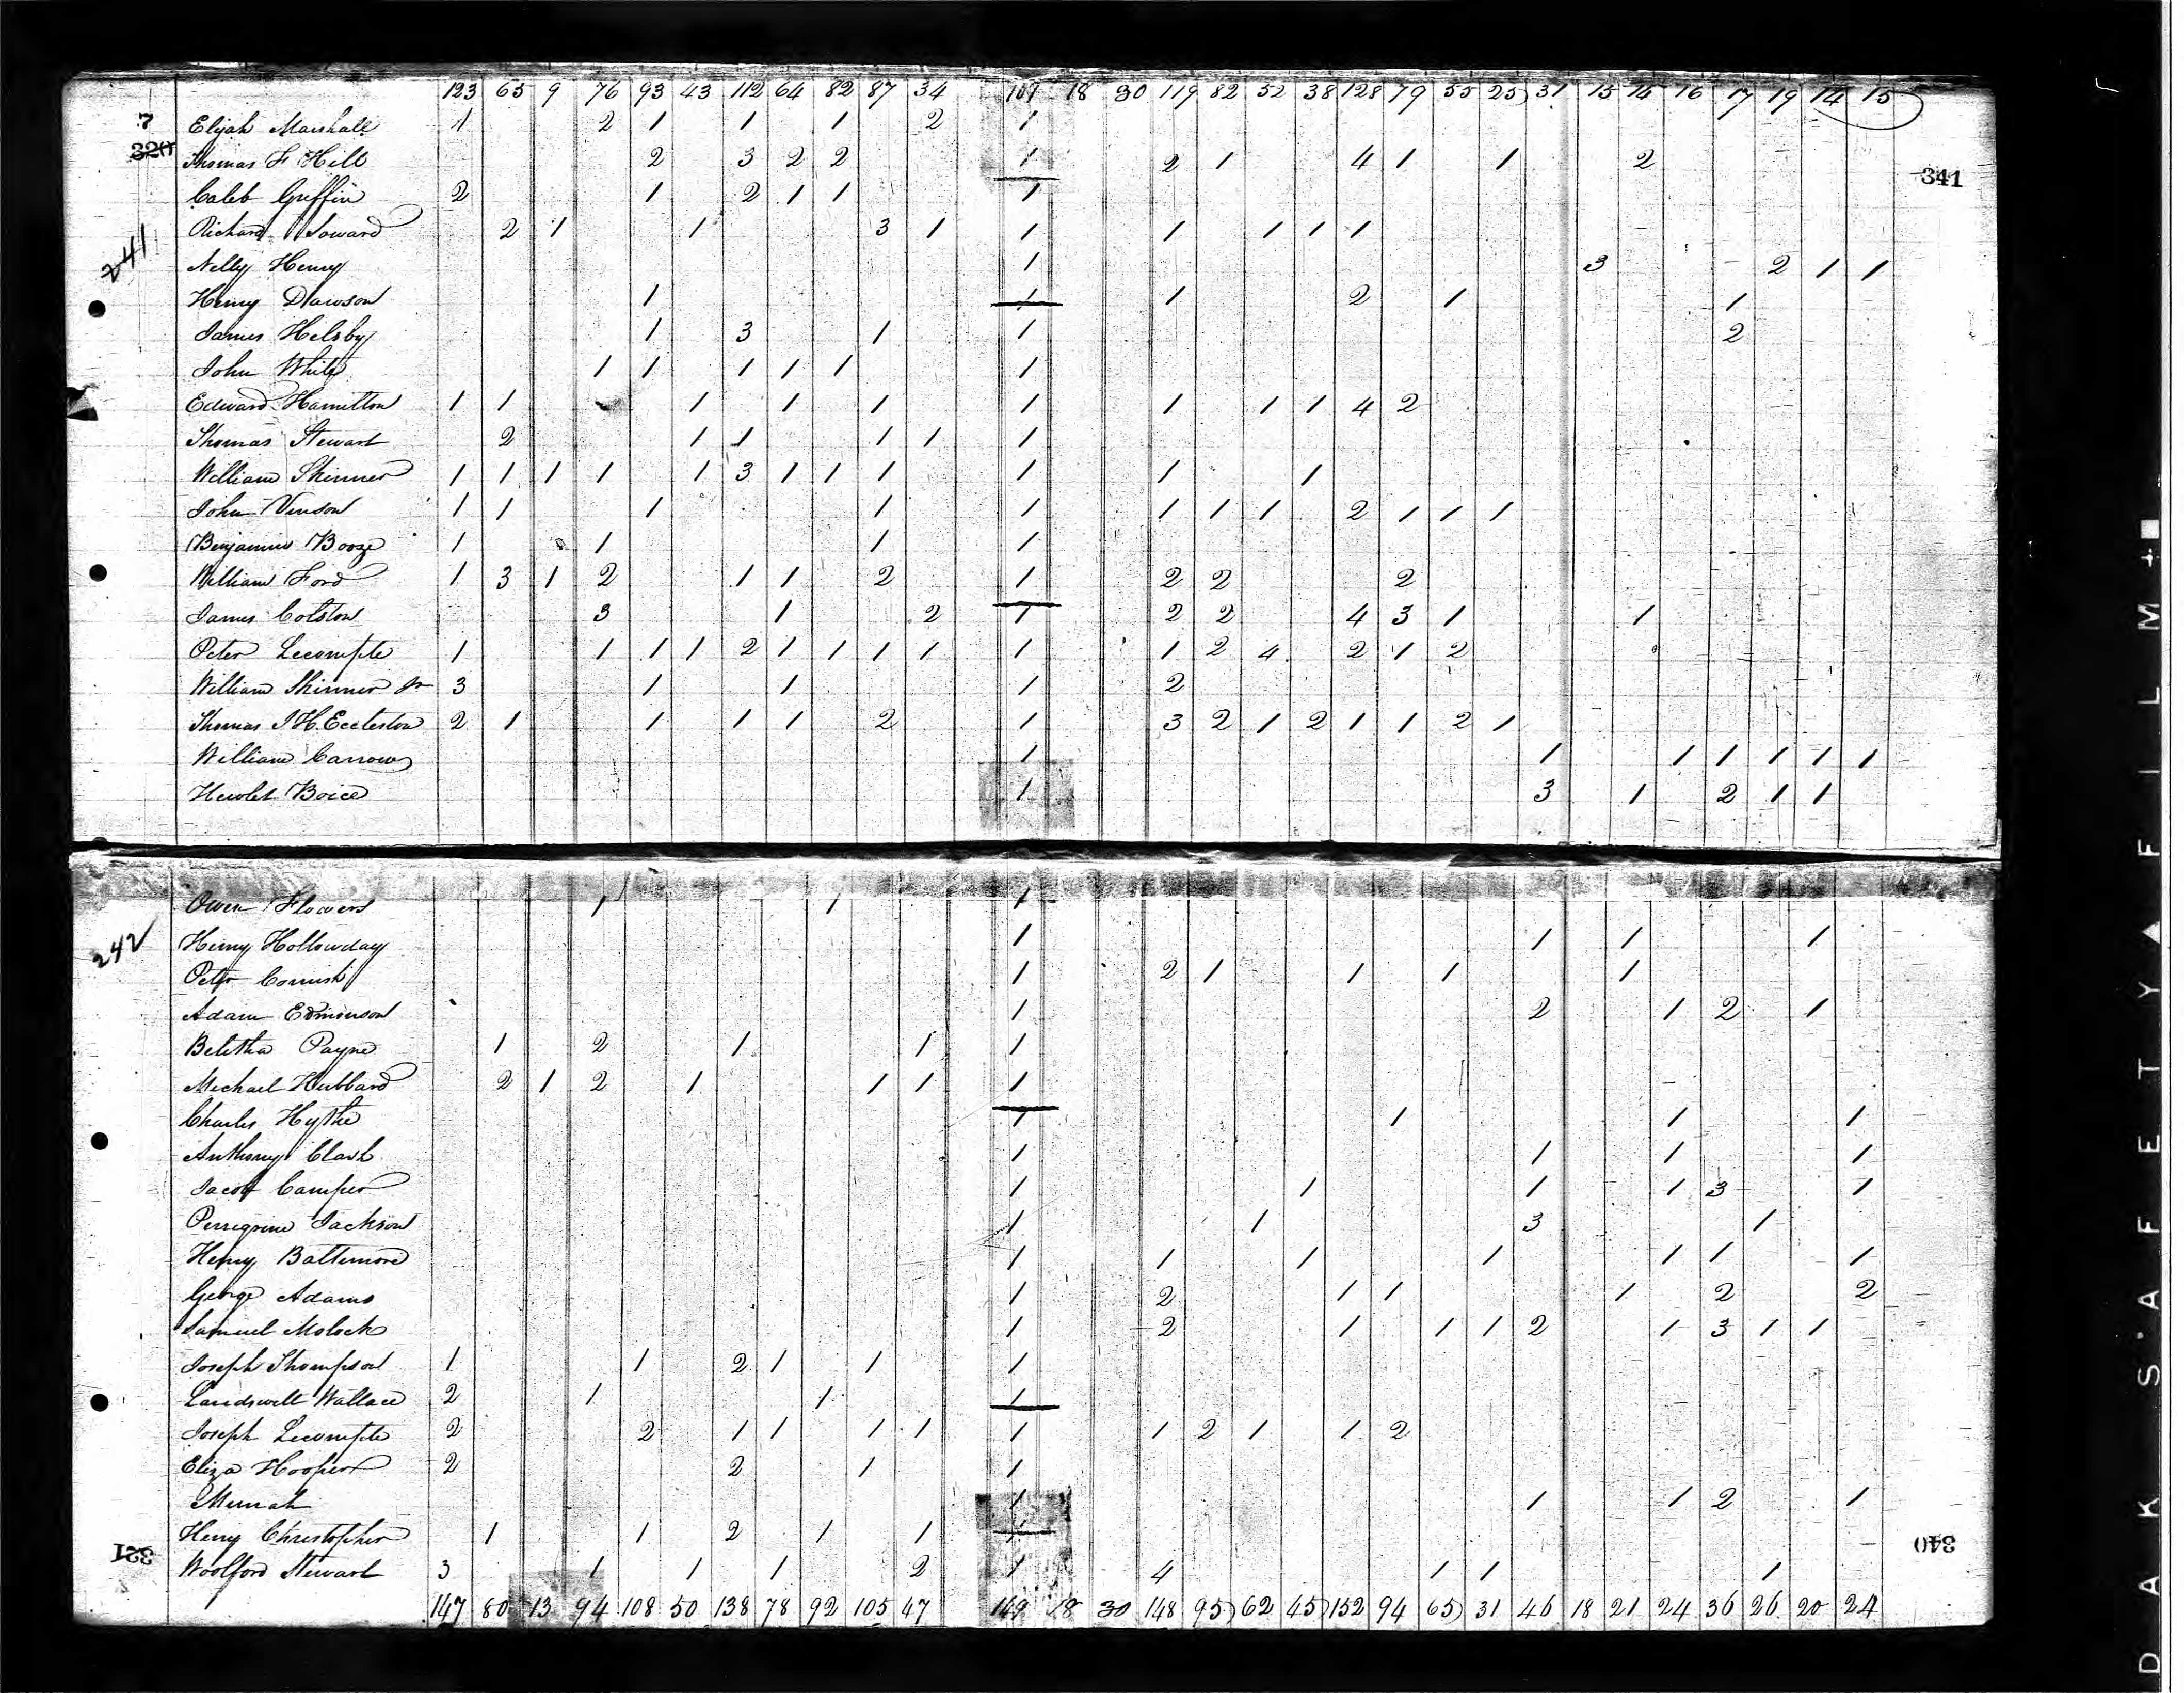 123 65 9 76 93 43 112 64 82 87 34 107 18 30 119 82 52 38 128 79 55 25 31 13 14 16 17 19 14 15
7 Elijah Marshall 1 2 1 1 1 2 1
320 Thomas F Hill 2 3 2 2 1 2 1 4 1 1 2
341
Caleb Griffin 2 1 2 1 1 1
241 Richard Soward 2 1 1 3 1 1 1 1 1 1
Nelly Henry 1 3 2 1 1
Henry Dawson 1 1 1 2 1 1
James Helsby 1 3 1 1 2
John White 1 1 1 1 1 1
Edward Hamilton 1 1 1 1 1 1 1 1 1 4 2
Thomas Stewart 2 1 1 1 1 1
William Skinner 1 1 1 1 1 3 1 1 1 1 1 1
John Vinson 1 1 1 1 1 1 1 1 2 1 1 1
Benjamin Booze 1 1 1 1
William Ford 1 3 1 2 1 1 2 1 2 2 2
James Colston 3 1 2 1 2 2 4 3 1 1
Peter Lecompte 1 1 1 1 2 1 1 1 1 1 1 2 4 2 1 2
William Skinner Jr 3 1 1 1 2
Thomas I H. Eccleston 2 1 1 1 1 2 1 3 2 1 2 1 1 2 1
William Carrow 1 1 1 1 1 1 1
Hewlet Boice 1 3 1 2 1 1
Owen Flowers 1 1 1
242 Henry Holloway 1 1 1 1
Peter Cornish 1 2 1 1 1 1
Adam Edmonson 1 2 1 2 1
Belitha Payne 1 2 1 1 1
Michael Hubbard 2 1 2 1 1 1 1
Charles Hythe 1 1 1 1
Anthony Clash 1 1 1 1
Jacob Camper 1 1 1 1 3 1
Perregrine Jackson 1 1 3 1
Henry Baltimore 1 1 1 1 1 1 1
George Adams 1 2 1 1 1 2 2
Samuel Molock 1 2 1 1 1 2 1 3 1 1
Joseph Thompson 1 1 2 1 1 1
Wallace 2 1 1 1
Joseph Lecompte 2 2 1 1 1 1 1 1 2 1 1 2
Eliza Hooper 2 2 1 1
1 1 1 2 1
Henry Christopher 1 1 2 1 1 1
321 Woolford Stewart 3 1 1 1 2 1 4 1 1 1
340
147 80 13 94 108 50 138 78 92 105 47 149 18 30 148 95 62 45 152 94 65 31 46 18 21 24 36 26 20 24
D A K S ' A F E T Y ▲ F I L M +